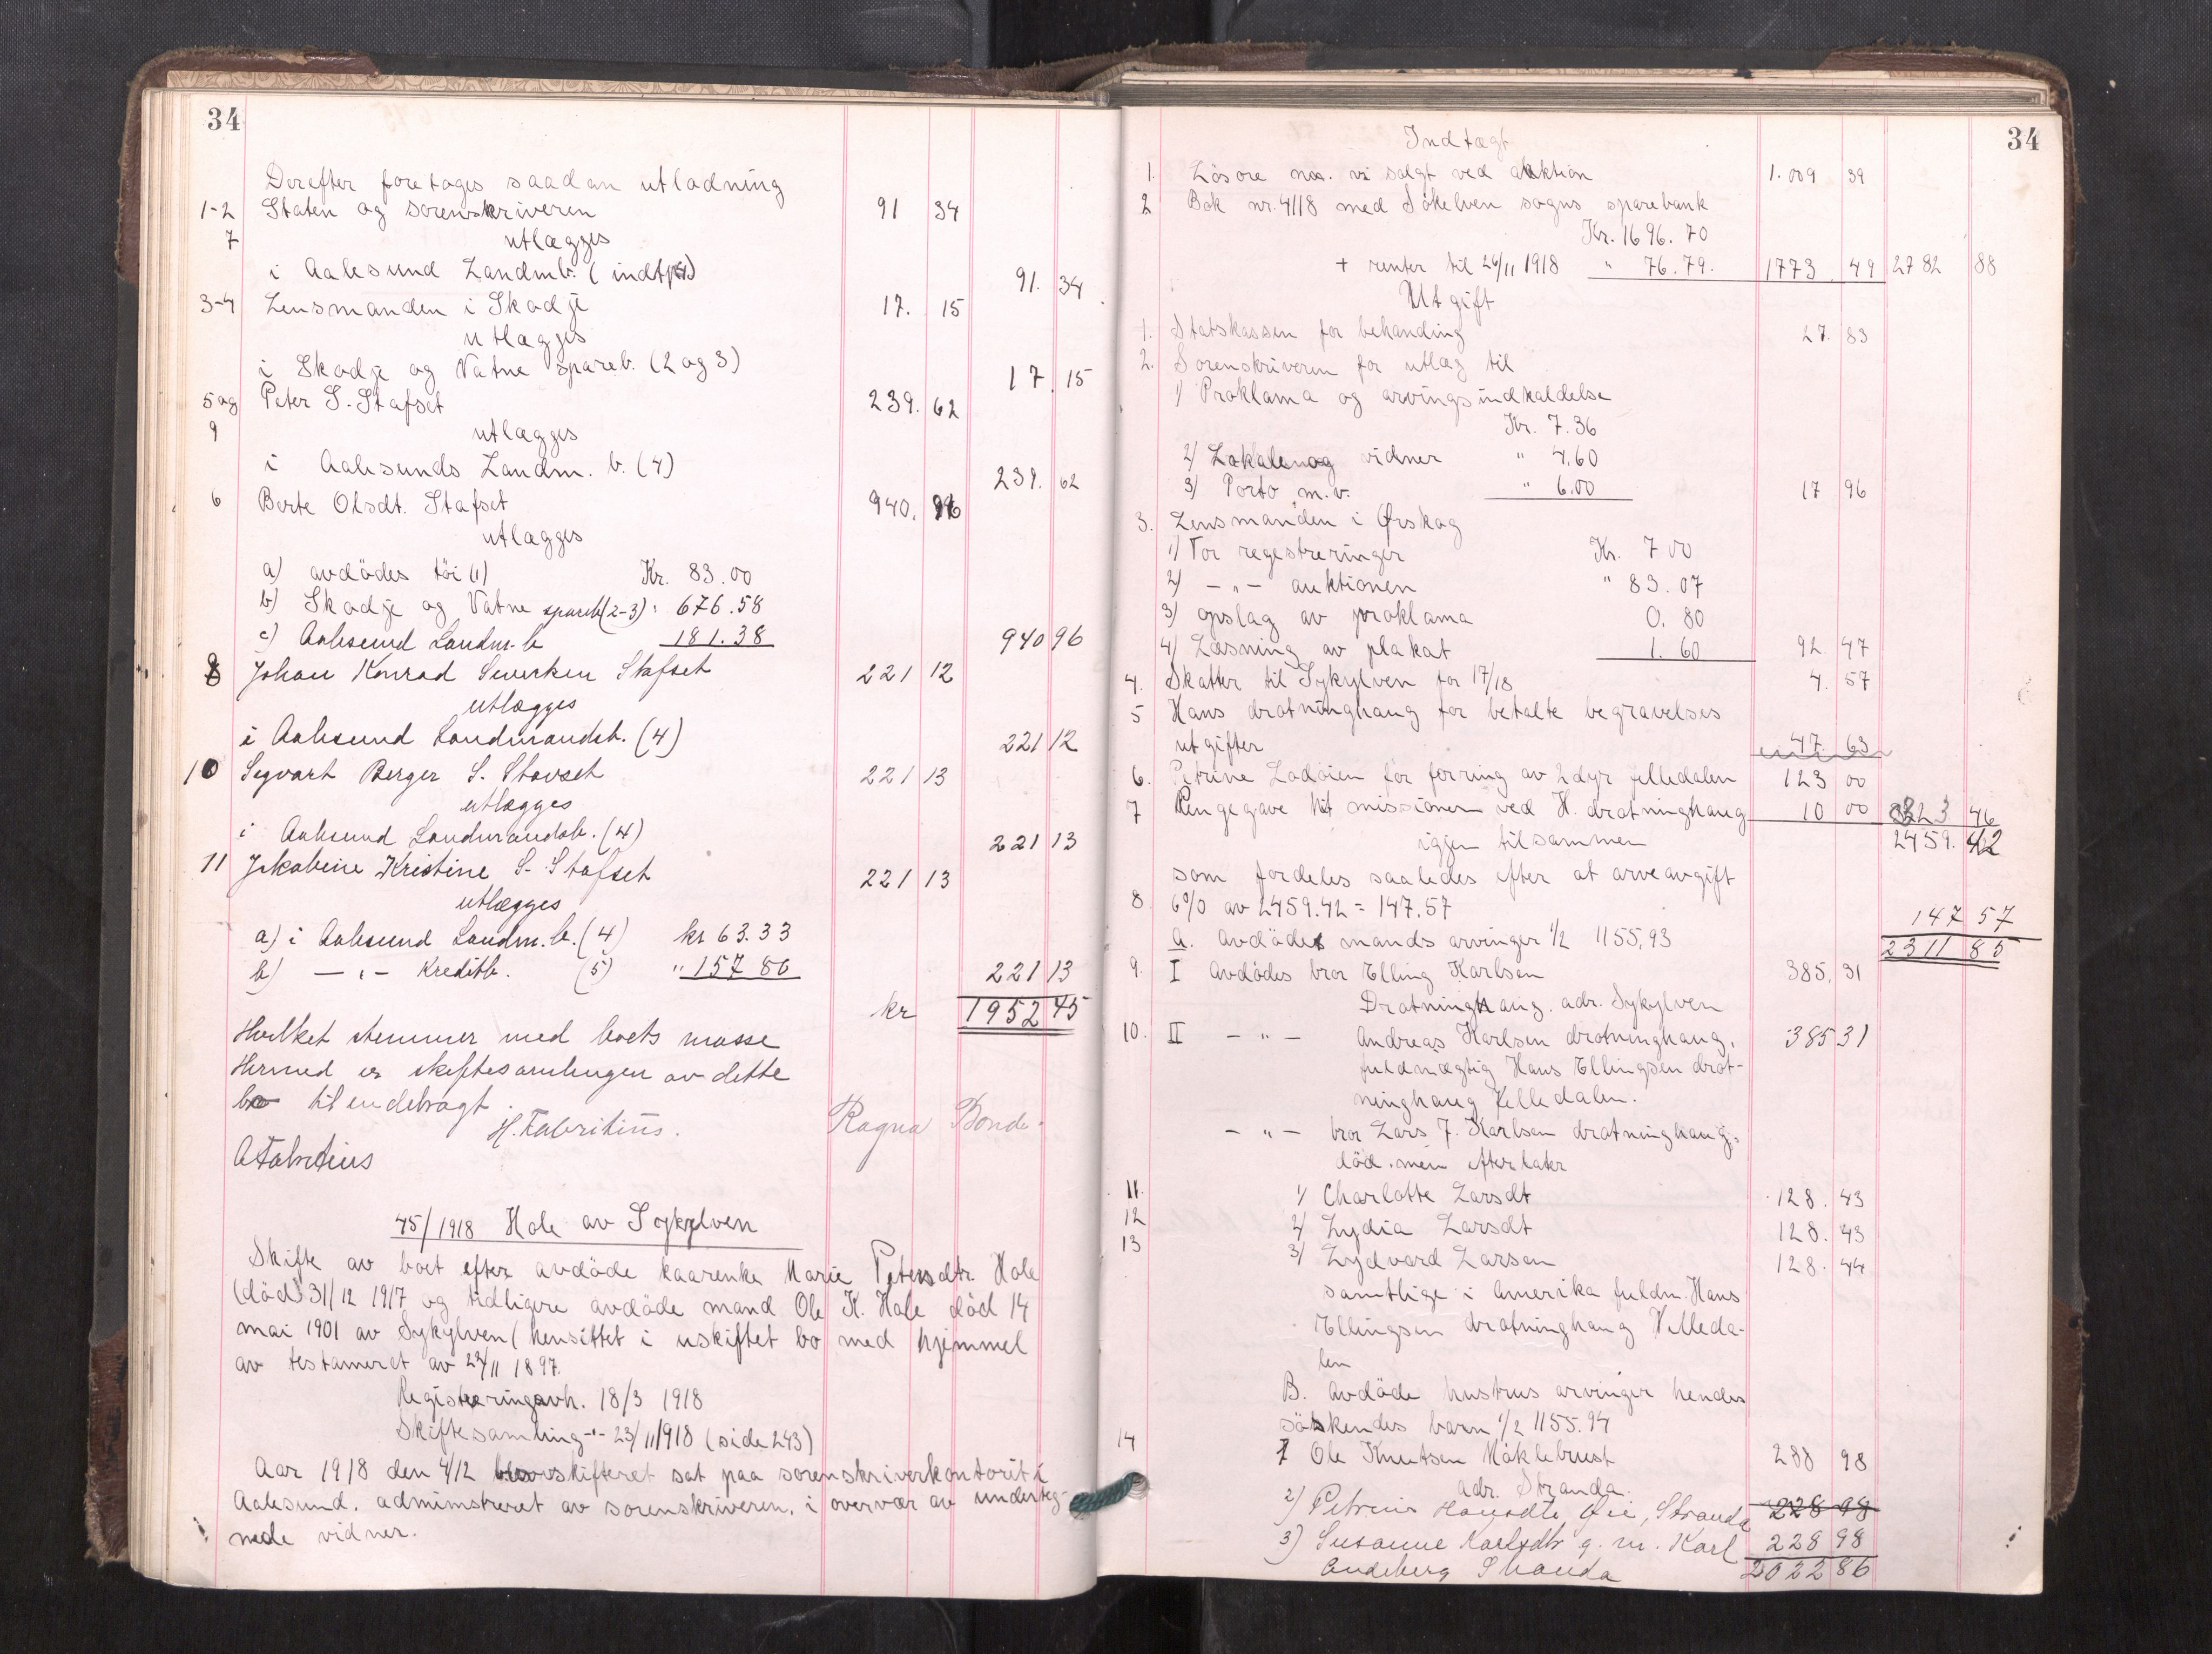 34
Derefter foretages saadan utlodning
1-2 Staten og sorenskriveren 91 34
7 utlægges
i Aalesund Landmb. ( 91. 34
3-4 Lensmanden i Skodje 17. 15
utlægges
i Skodje og Vatne spareb. (2 og 3) 17. 15
5 og Peter S. Stafset 239. 62
9 utlægges
i Aalesunds Landm. b. (4) 239. 62
6 Berte Olsdt. Stafset 940. 96
utlægges
a) avdödes töi (1) Kr. 83.00
b) Skodje og Vatne spareb(2-3) " 676.58
c) Aalesund Landm. b 181.38 940 96
8 Johan Konrad Seversen Stafset 221 12
utlægges
i Aalesund Landmandsb. (4) 221 12
10 Segvart Berger S. Stavset 221 13
utlægges
i Aalesund Landmandsb. (4) 221 13
11 Jakobine Kristine S. Stafset 221 13
utlægges
a) i Aalesund Landm. b. (4) kr 63.33
b) — " — Kreditb. (5) " 157 80 221 13
kr 1952 45
Hvilket stemmer med boets masse
Hermed er skiftesamlingen av dette
bo til endebragt.
H. Fabritius. Ragna Bonde.
A Fabritius
45/1918 Hole av Sykylven
Skifte av boet efter avdöde kaarenke Marie Petersdtr. Hole
(död 31/12 1917 og tidligere avdöde mand Ole K. Hole död 14
mai 1901 av Sykylven (hensittet i uskiftet bo med hjemmel
av testameret av 24/11 1897.
Registreringsvh. 18/3 1918
Skiftesamling -"- 23/11 1918 (side 243)
Aar 1918 den 4/12 blev skifteret sat paa sorenskriverkontoret i
Aalesund. administreret av sorenskriveren, i overvær av underteg-
nede vidner.
34
Indtægt
1. Lösöre nos. vi solgt ved auktion 1.009 39
2 Bok nr. 4118 med Sökelven sogns sparebank
Kr. 1696.70
+ renter til 26/11 1918 " 76.79. 1773. 49 2782 88
Utgift
1. Statskassen for behandling 27. 83
2. Sorenskriveren for utlæg til
1) Proklama og arvingsindkaldelse
Kr. 7.36
2) Lokale og vidner " 4.60
3) Porto m.v. " 6.00 17 96
3. Lensmanden i Ørskog
1) For registreringer Kr. 7 00
2) — " — auktionen " 83.07
3) opslag av proklama 0. 80
4) Læsning av plakat 1. 60 92. 47
4. Skatter til Sykylven for 17/18 4. 57
5 Hans drotninghaug for betalte begravelses
utgifter 47. 63
6. Petrine Ladöien for forring av 2 dyr Velledalen 123 00
7 Pengegave til missionen ved H. drotninghaug 10 00 323 46
igjen tilsammen 2459. 42
som fordeles saaledes efter at arveavgift
8 6% av 2459.42 = 147.57 147 57
A. avdödes mands arvinger 1/2 1155.93 2311 85
9. I Avdödes bror Elling Karlsen 385. 31
Drotninghaug. adr. Sykylven
10. II — " — Andreas Karlsen drotninghaug, 385 31
fuldmægtig Hans Ellingsen drot-
ninghaug Velledalen.
— " — bror Lars J. Karlsen drotninghaug,
död. men efterlater
11. 1) Charlotte Larsdt 128. 43
12 2) Lydia Larsdt 128. 43
13 3) Lydvard Larsen 128. 44
samtlige i Amerika fuldm. Hans
Ellingsen drotninghaug Velleda-
len
B. Avdöde hustrus arvinger hendes
söskendes barn 1/2 1155.94
14 1 Ole Knutsen Måklebust 288 98
adr. Stranda.
2) Petrine Hansdtr Øie, Stranda 228 98
3) Susanne Karlsdtr g. m. Karl 228 98
Andeberg Stranda 2022 86